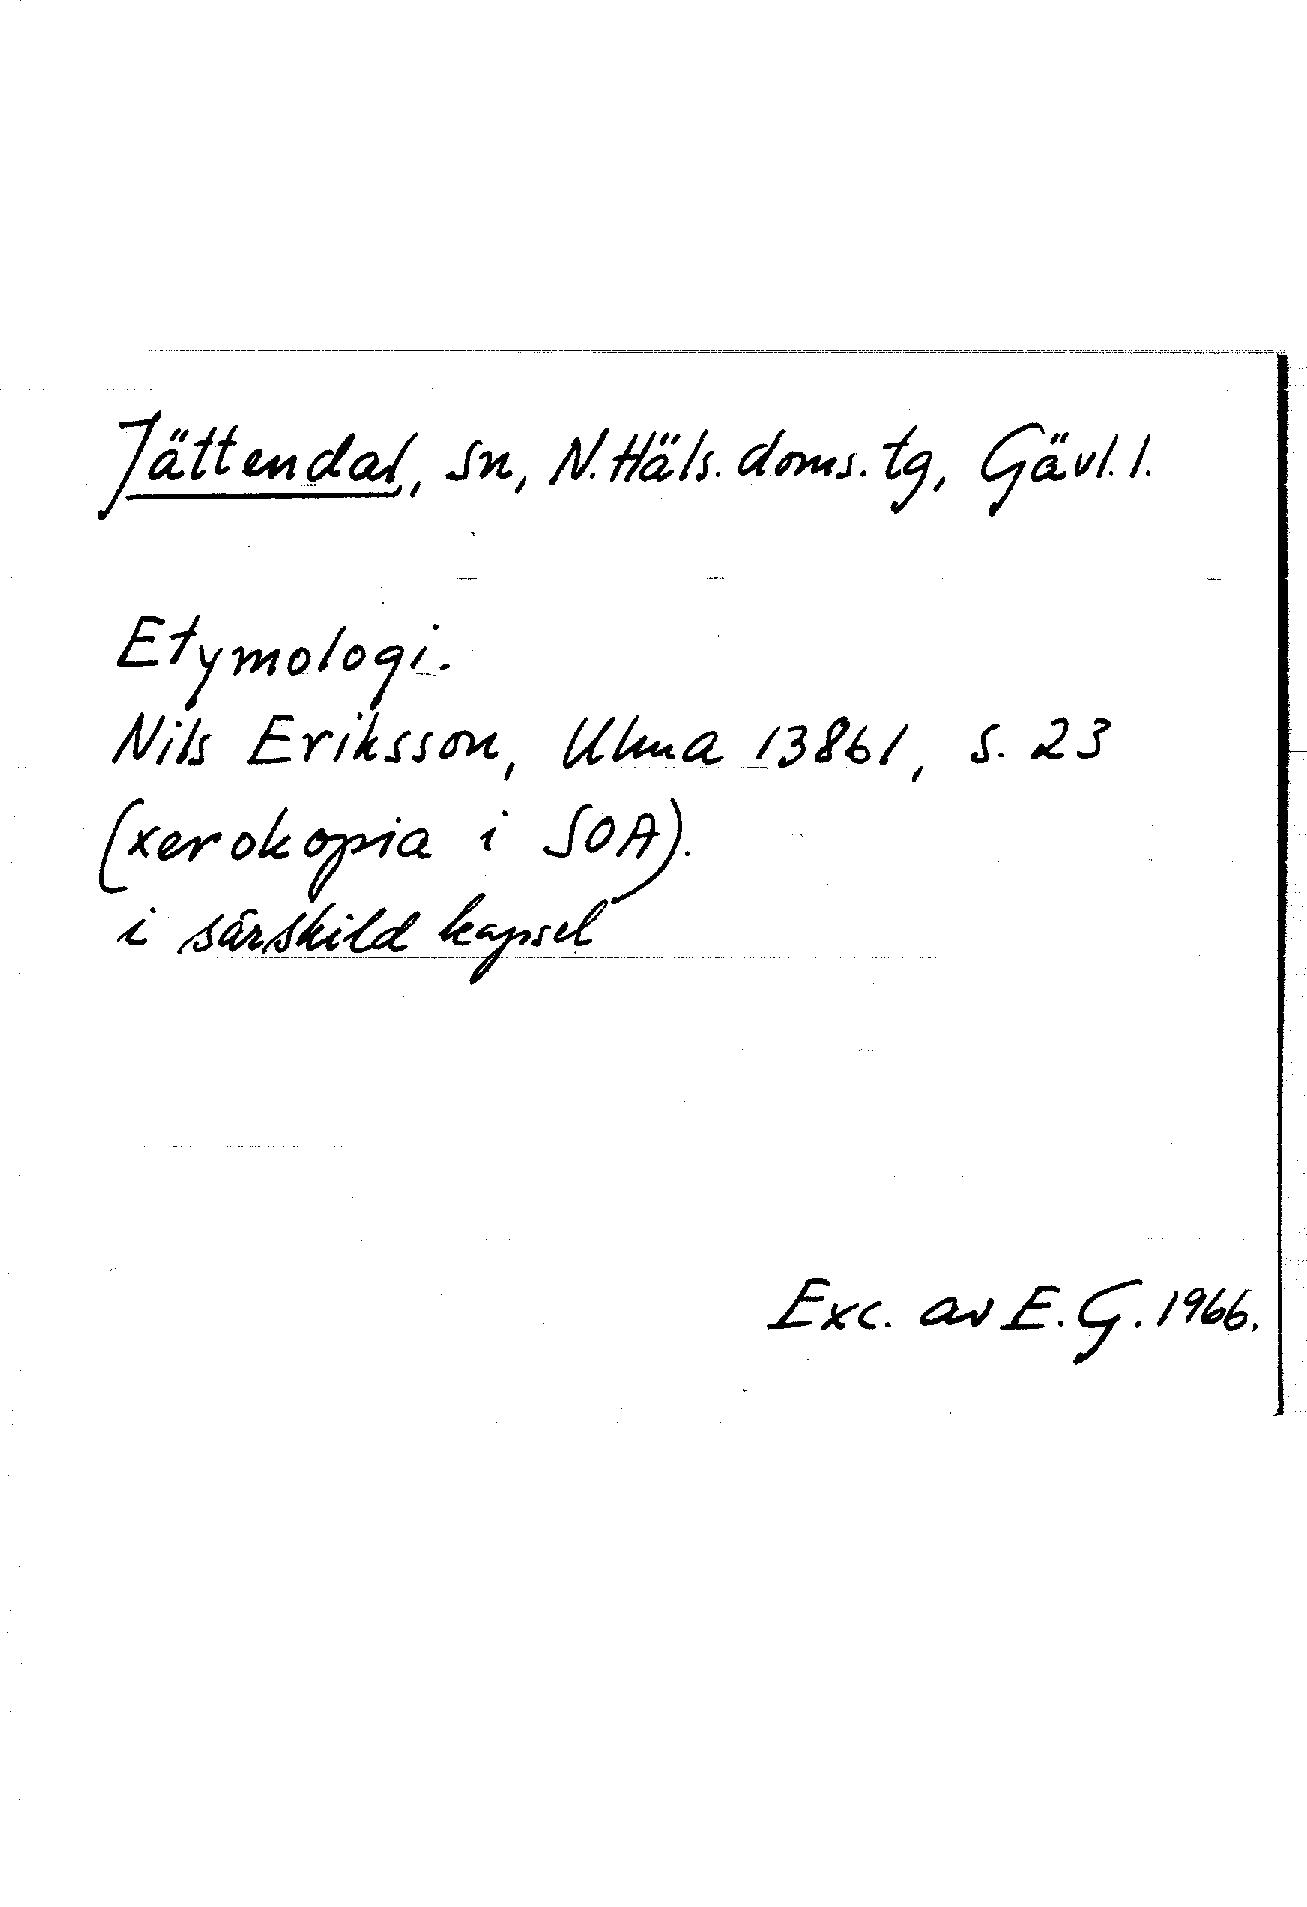 Jättendal, sn, N. Häls. doms. tg, Gävl. l.
Etymologi.
Nils Eriksson, Ulma 13861, s. 23
(xerokopia i SOA).
i särskild kapsel
Exc. av E. G. 1966.